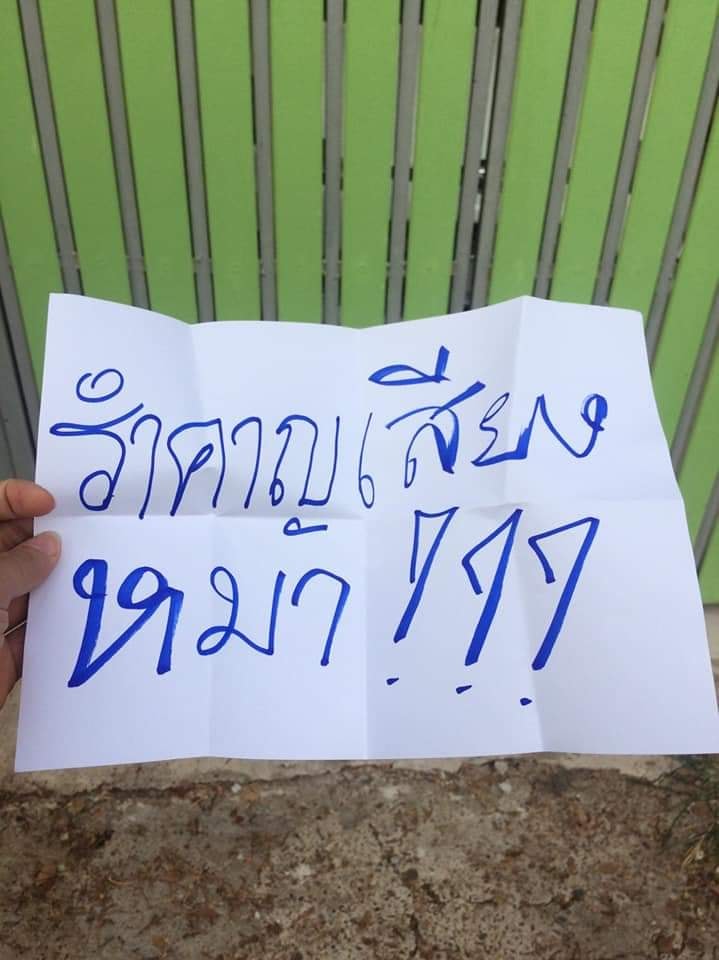 รำคาญเสียง
หมา !!!